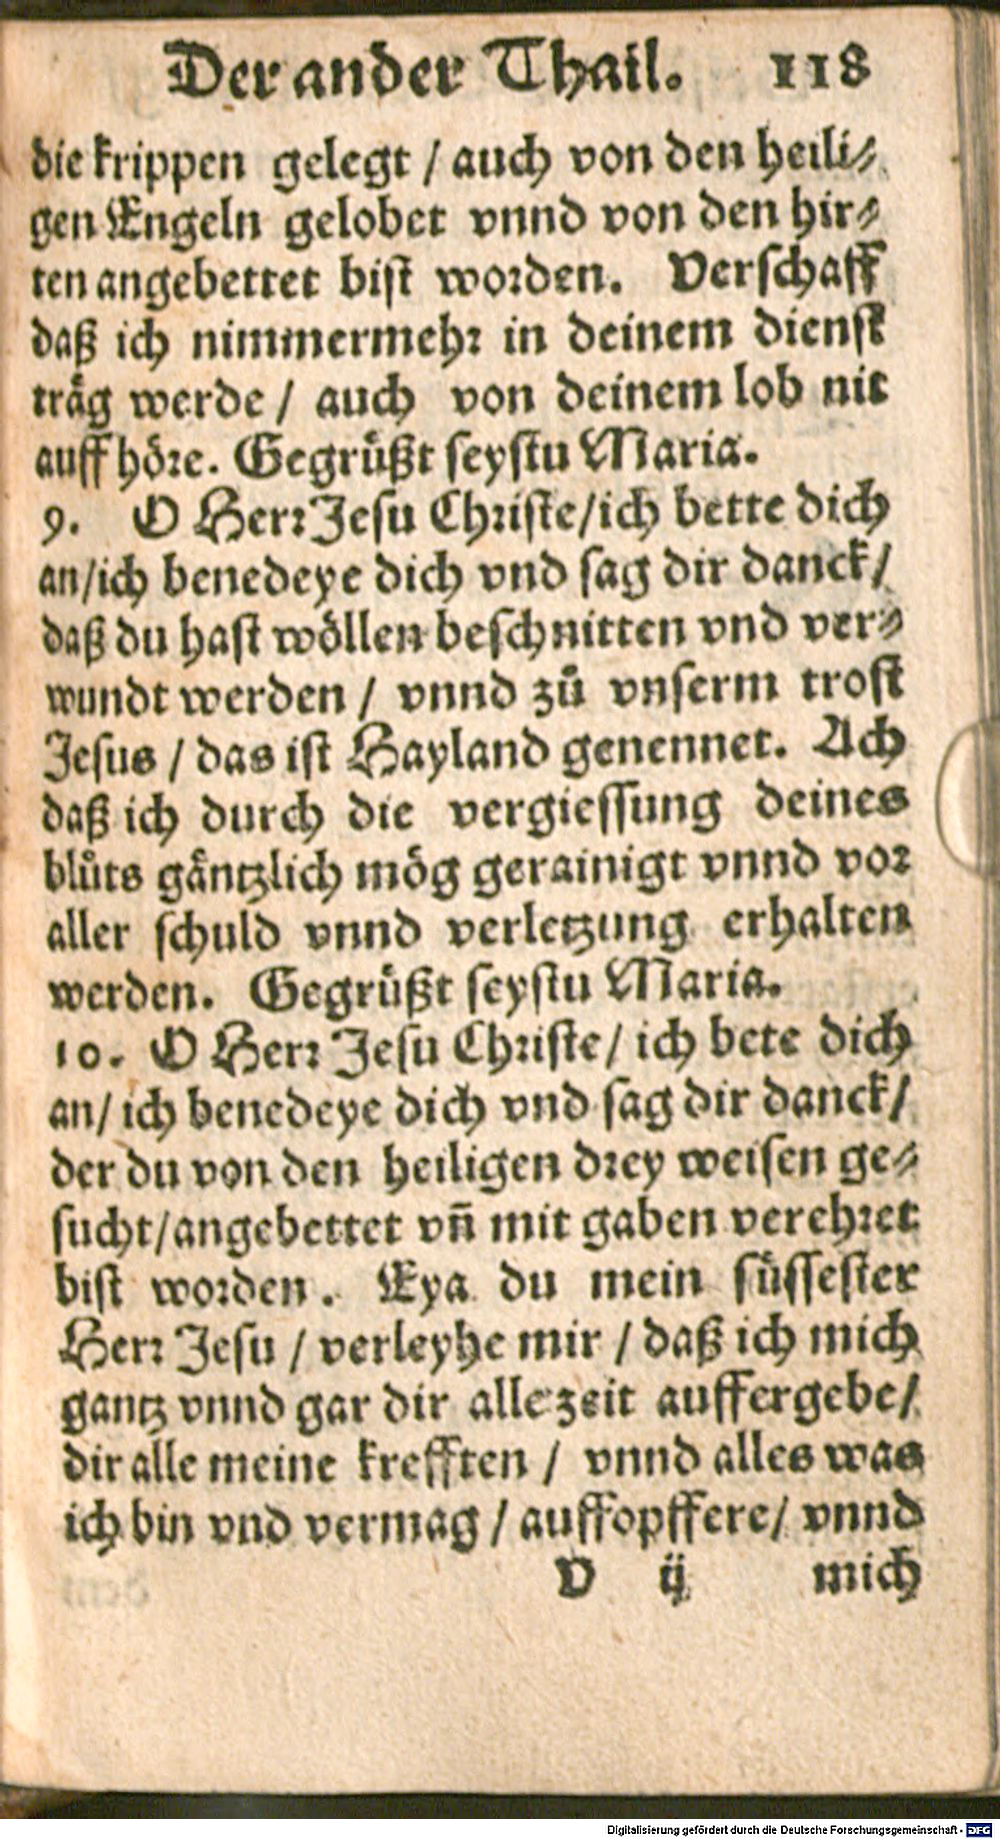 Der ander Thail. 118
die krippen gelegt / auch von den heili⸗
gen Engeln gelobet vnnd von den hir⸗
ten angebettet bist worden. Verschaff
daß ich nimmermehr in deinem dienst
tråg werde / auch von deinem lob nit
auff höre. Gegrüßt seystu Maria.
9. O Herr Jesu Christe/ich bette dich
an/ich benedeye dich vnd sag dir danck/
daß du hast wöllen beschnitten vnd ver⸗
wundt werden / vnnd zů vnserm trost
Jesus / das ist Hayland genennet. Ach
daß ich durch die vergiessung deines
blůts gäntzlich mög gerainigt vnnd vor
aller schuld vnnd verletzung erhalten
werden. Gegrüßt seystu Maria.
10. O Herr Jesu Christe/ ich bete dich
an/ ich benedeye dich vnd sag dir danck/
der du von den heiligen drey weisen ge⸗
sucht/angebettet vn̄ mit gaben verehret
bist worden. Eya du mein süssester
Herr Jesu / verleyhe mir / daß ich mich
gantz vnnd gar dir allezeit auffergebe/
dir alle meine krefften / vnnd alles was
ich bin vnd vermag / auffopffere/ vnnd
V ij mich
Digitalisierung gefördert durch die Deutsche Forschungsgemeinschaft - DFG